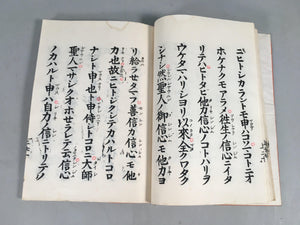 ニヒトシカラントモ申ハコソマコトニオ
ホケナクモアラメ往生ノ信心ニイタ
リテハヒトタヒ他力信心ノコトハリヲ
ウケタマハリシヨリ以來全クワタク
シナシ然ハ聖人ノ御信心モ他力ヨ
リ給ラセタマフ善信カ信心モ他
力也故ニヒトシクシテカハルトコロ
ナシト申也ト申侍シトコロニ大師
聖人マサシクオホセラレテ云信心
ノカハルト申ハ自力ノ信ニトリテノ